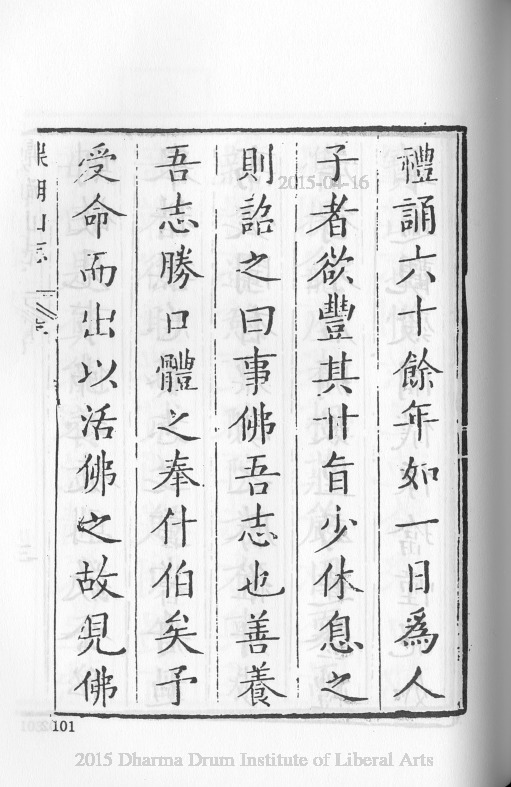 禮誦六十餘年如一日爲人
子者欲豐其甘旨少休息之
則詔之曰事佛吾志也善養
吾志勝口體之奉什伯矣予
受命而出以活佛之故見佛
2015-04-16
101
2015 Dharma Drum Institute of Liberal Arts